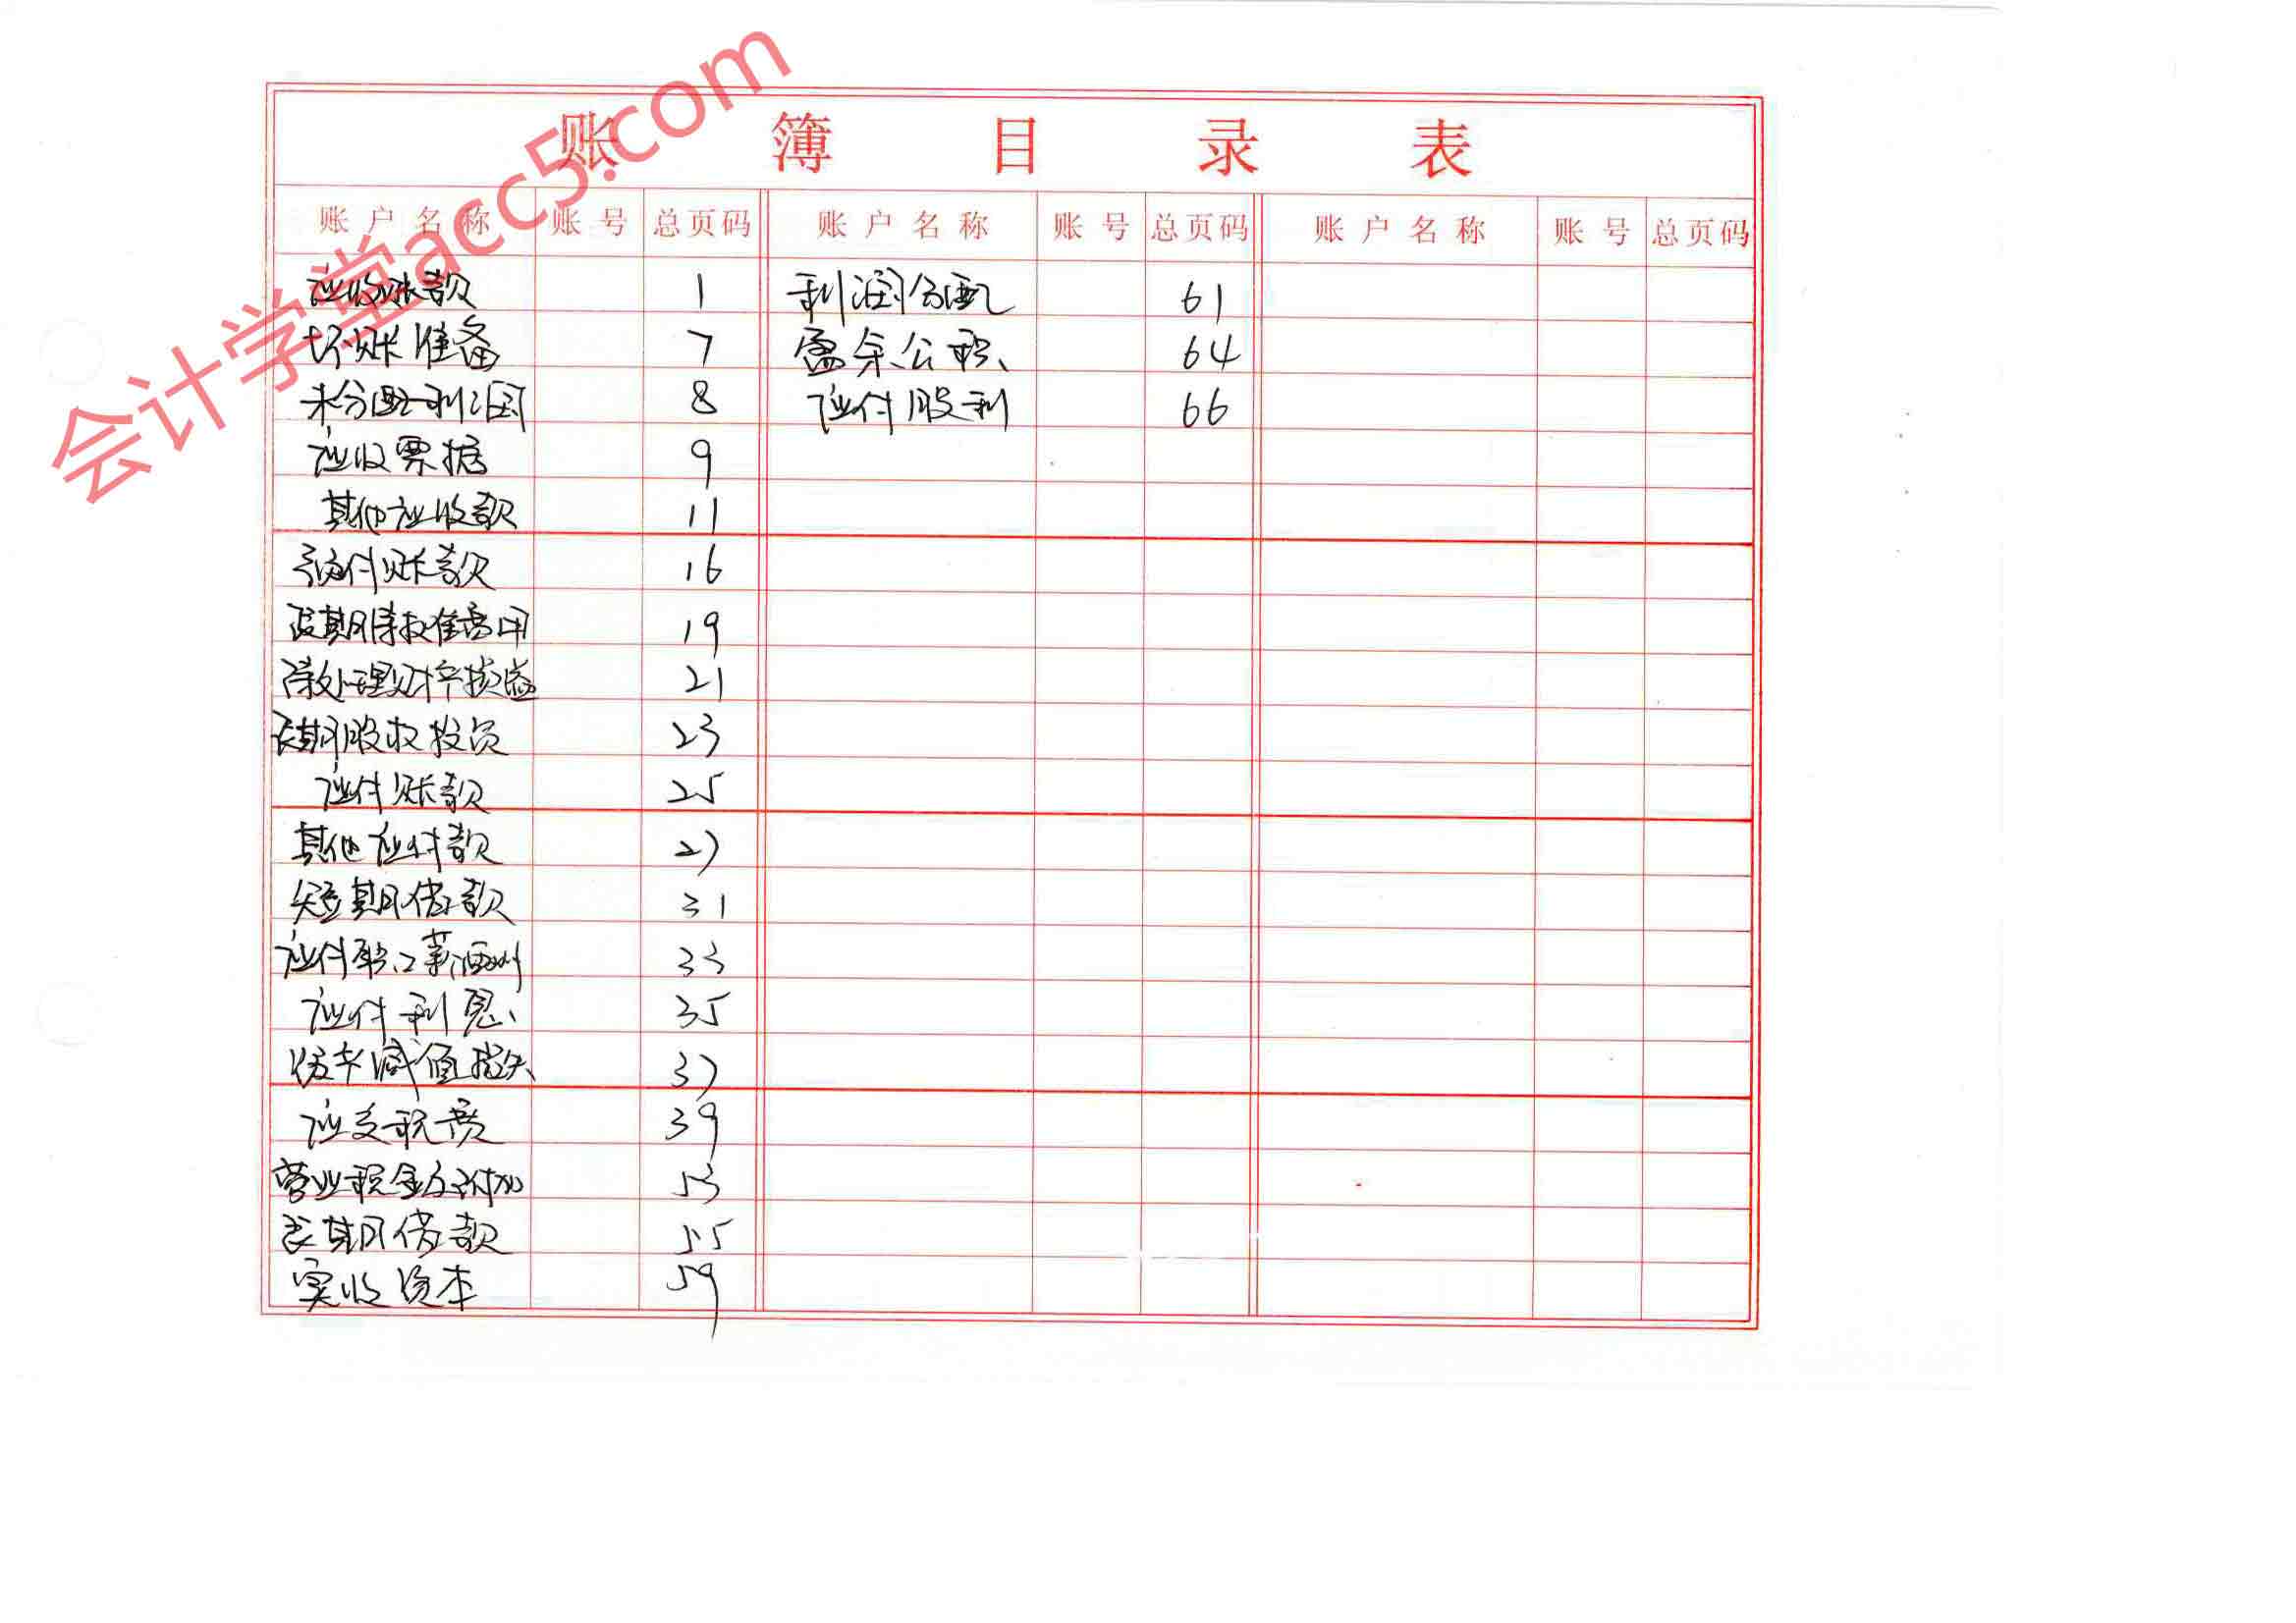 账簿目录表
账户名称 账号 总页码 账户名称 账号 总页码 账户名称 账号 总页码
应收账款 1 利润分配 61
坏账准备 7 盈余公积 64
未分配利润 8 应付股利 66
应收票据 9
其他应收款 11
预付账款 16
长期待摊费用 19
待处理财产损溢 21
长期股权投资 23
应付账款 25
其他应付款 27
短期借款 31
应付职工薪酬 33
应付利息 35
资产减值损失 37
应交税费 39
营业税金及附加 53
长期借款 55
实收资本 59
会计学堂acc5.com